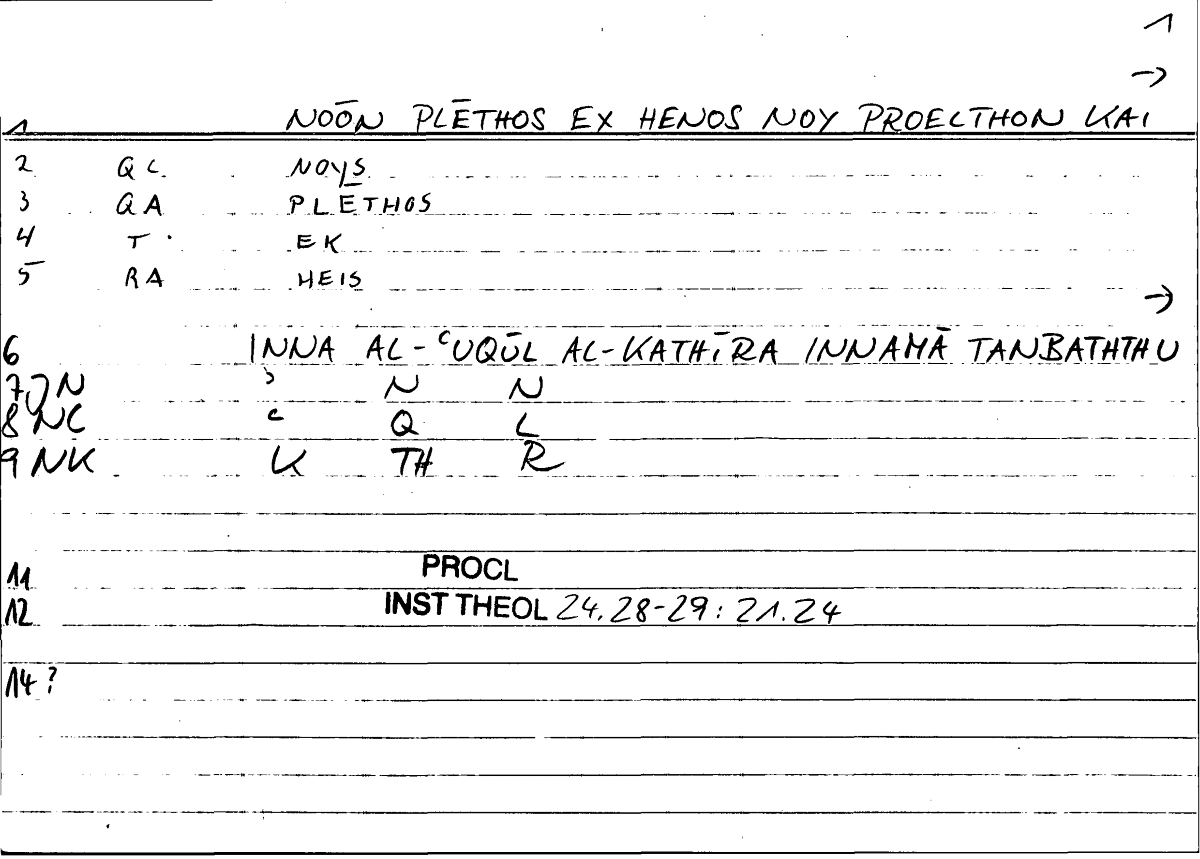 1
→
1 NOŌN PLĒTHOS EX HENOS NOY PROELTHON KAI
2 QL NOYS
3 QA PLĒTHOS
4 T EK
5 RA HEIS
→
6 INNA AL-ʿUQŪL AL-KATHĪRA INNAMĀ TANBATHTHU
7 JN ʾ N N
8 NC ʿ Q L
9 NK K TH R
11 PROCL
12 INST THEOL 24.28-29: 21.24
14 ?